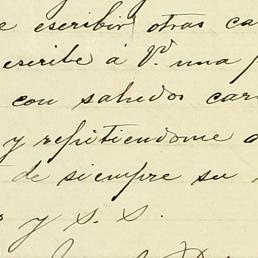 escribir otras ca
escribe á V. una
con saludos car
y repitiendome
de siempre su
y S. S.